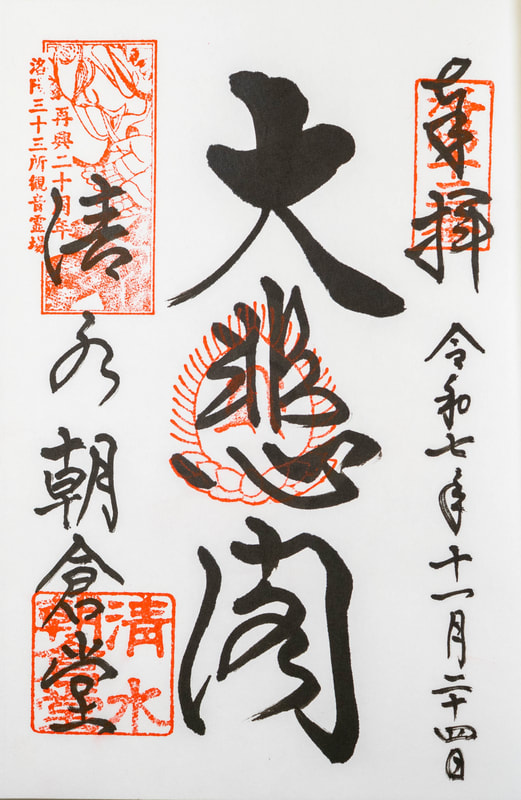 奉拝
令和七年十一月二十四日
大悲閣
再興二十周年
洛陽三十三所観音霊場
清水朝倉堂
清水
朝倉堂